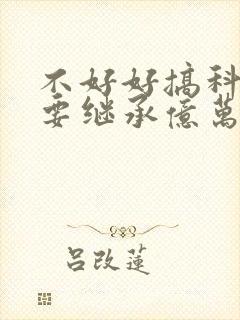 不好好搞科
要继承億萬
吕改蓮